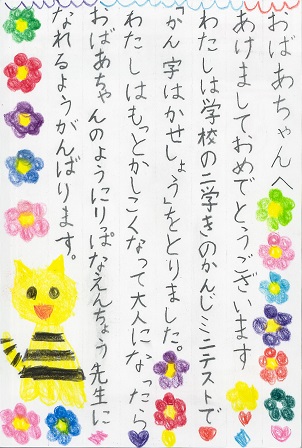 おばあちゃんへ
あけましておめでとうございます
わたしは学校の二学きのかんじミニテストで
「かん字はかせしょう」をとりました。
わたしはもっとかしこくなって大人になったら
おばあちゃんのようにりっぱなえんちょう先生に
なれるようがんばります。